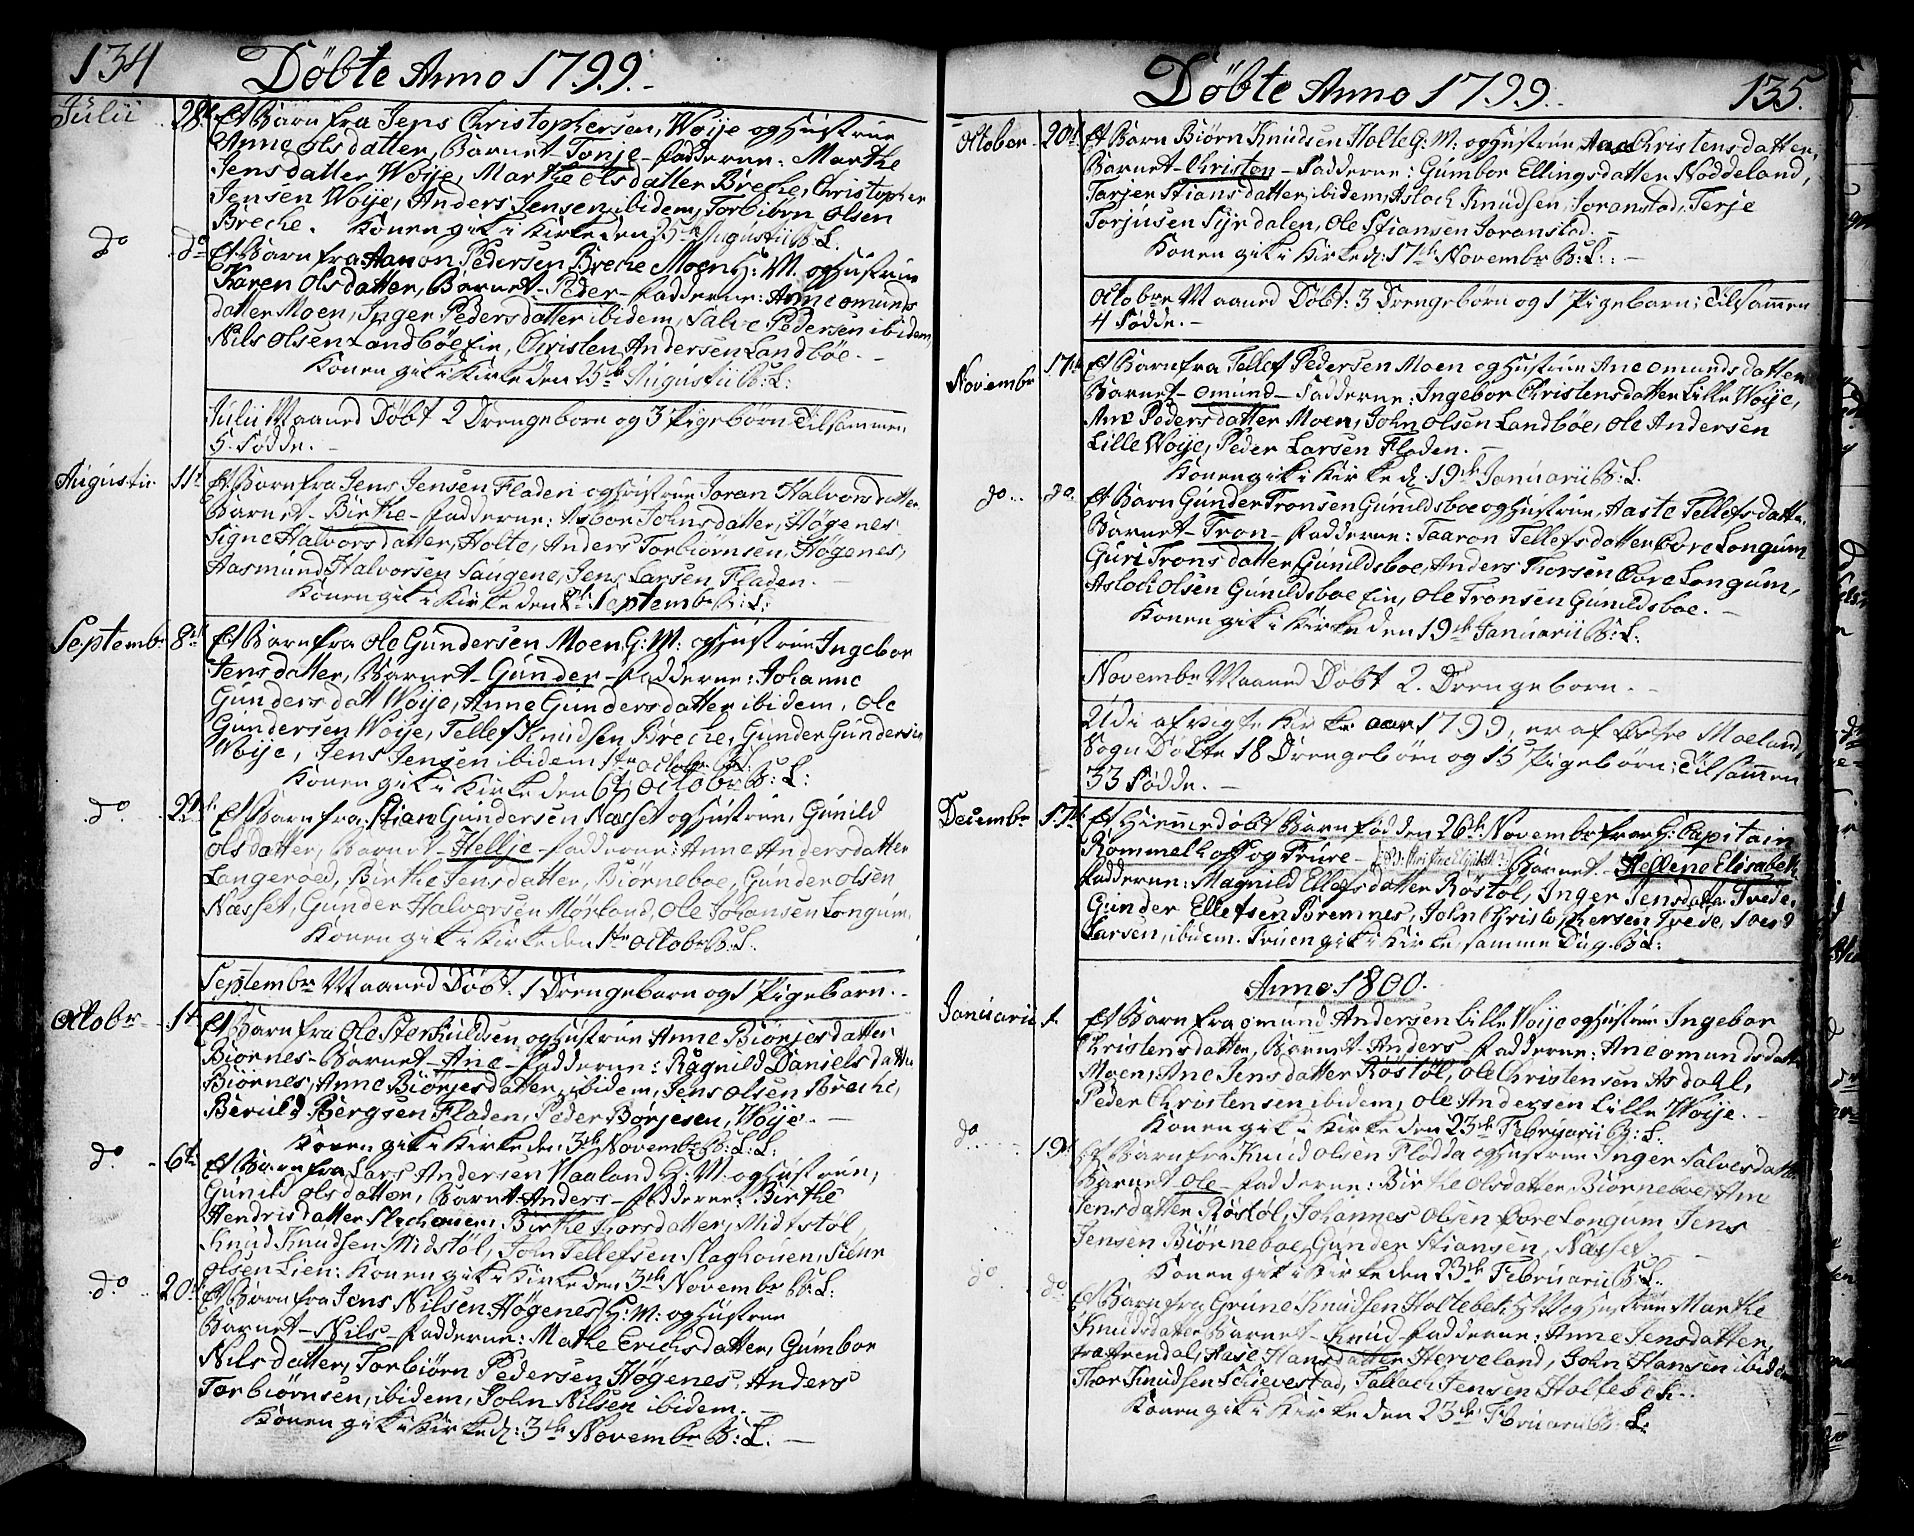 134 Döbte Anno 1799.
Julii 28de Et Barn fra Jens Christophersen, Woije og Hustrue
Anne Olsdatter, Barnet Tonje – fadderne: Marthe
Jensdatter Woije, Marthe Olsdatter Breche, Christopher
Jensen Woije, Anders Jensen ibidem, Torbiörn Olsen
Breche. Konen gik i Kirke den 25de Augustii B: L.
do do Et Barn fra Aanon Pedersen Breche Moen H: M. og Hustrue
Karen Olsdatter, Barnet – Peder – fadderne: Anne Omunds
datter Moen, Inger Pedersdatter ibidem, Salve Pedersen ibidem,
Nils Olsen Landböe Ein, Christen Andersen Landböe. –
Konen gik i Kirke den 25de Augustii B: L:
Julii Maaned Döbt 2 Drengeborn og 3 Pigebörn Tilsammen
5. Födde. –
Augustii 11te Et Barn fra Jens Jensen Fladen og Hustrue Joran Halvorsdatter
Barnet – Birthe – fadderne: Asbor Johnsdatter, Högenes
Signe Halvorsdatter, Holte, Anders Torbiörnsen, Högenes,
Aasmund Halvorsen Saugene, Jens Larsen Fladen. –
Konen gik i Kirke den Septembr B: L:
Septembr 8de Et Barn fra Ole Gundersen Moen G: M: og Hustrue Ingebor
Jensdatter, Barnet – Gunder – fadderne: Johanne
Gundersdatt Woije, Anne Gundersdatter ibidem, Ole
Gundersen Woije, Tellef Knudsen Breche, Gunder Gundersen
Woije, Jens Jensen ibidem
Konen gik i Kirke den 6te Octobr B: L:
do 22de Et Barn fra Stian Gundersen Næsset og Hustrue, Gunild
Olsdatter, Barnet – Hellje – fadderne: Anne Andersdatter
Langeroed, Birthe Jensdatter, Biörneboe, Gunder Olsen
Næsset, Gunder Halvorsen Mörland, Ole Johansen Longum,
Konen gik i Kirke den 1te Octobr B: L.
Septembr Maaned Döbt 1 Drengebarn og 1 Pigebarn. –
Octobr 1te Et Barn fra Ole Sterkuldsen og Hustrue Anne Biörjesdatter
Biörnes – Barnet – Ane – fadderne: Ragnild Danielsdatter
Biörnes, Anne Biörjesdatter, ibidem, Jens Olsen Breche,
Beruld Bergsen Fladen, Peder Borjesen, Woije. –
Konen gik i Kirke den 3de Novembr B: L:
do 6te Et Barn fra Lars Andersen Haaland H: M: og Hustrue,
Gunild Olsdatter, Barnet Anders – fadderne: Birthe
Hendrisdatter, Birthe Torsdatter, Midtstöl
Knud Knudsen Midstöl, John Tellefsen Slaghouen,
Olsen Lien: Konen gik i Kirke den 3de Novembr B: L:
do 20de Et Barn fra Jens Nilsen Högenes H: M: og Hustrue
Barnet – Nils – fadderne: Mathe Erichsdatter, Gumbor
Nilsdatter, Torbiörn Pedersen Högenes, Anders
Torbiörnsen, ibidem, John Nilsen ibidem. –
Konen gik i Kirke d: 3de Novembr B: L. –
Döbte Anno 1799. 135.
Octobr 20de Et Barn Biörn Knudsen Holte G: M: og Hustrue Aase Christensdatter,
Barnet Christen – fadderne: Gumbor Ellingsdatter Noddeland,
Tarjer Stiansdatter ibidem, Asloch Knudsen, Joranstad, Terje
Torjusen Syrdalen, Ole Stiansen Joranstad. –
Konen gik i Kirke d: 17de Novembr B: L: –
Octobre Maaned Döbt: 3 Drengebörn og 1 Pigebarn; Tilsammen
4 Födde. –
Novembr 17de Et Barn fra Tellef Pedersen Moen og Hustrue Ane Omundsdatter
Barnet – Omund – fadderne: Ingebor Christensdatter Lille Woije,
Ane Pedersdatter Moen, John Olsen Landböe, Ole Andersen
Lille Woije, Peder Larsen Fladen. –
Konen gik i Kirke d. 19de Januarii B: L.
do do Et Barn Gunder Tronsen Gunildsboe og Hustrue, Aaste Tellefsdatter
Barnet – Tron – fadderne: Taaron Tellefsdatter Övre Longum
Guri Tronsdatter, Gunildsboe, Anders Thorsen Övre Longum,
Asloch Olsen Gunildsboe Ein, Ole Tronsen Gunildsboe. –
Konen gik i Kirke den 19de Januarii B: L:
Novembr Maaned Döbt 2. Drengeborn. –
Udi afvigte Kirke aar 1799, er af Östre Moeland,
Sogn Döbte 18 Drengebörn og 15 Pigebörn; Tilsammen
33 Födde. –
Decembr Et Hiemmedöbt Barn föd den 26de Novembr fra H: Capitain
Rommelhoff og Frue – Barnet – Hellene Elisabeth
fadderne: Magnild Ellefsdatter Röstöl, Inger Jensdatter Tvede,
Gunder Ellefsen Bremnes, John Christophersen Tvede,
Larsen, ibidem. Fruen gik i Kirke samme Dag. B: L:
Anno 1800.
Januarii 1. Et Barn fra Omund Andersen Lille Woije og Hustrue Ingebor
Christensdatter, Barnet – Anders – fadderne: Ane Omundsdatter
Moen, Ane Jensdatter Röstöl, Ole Christensen Asdahl,
Peder Christensen ibidem, Ole Andersen Lille Woije. –
Konen gik i Kirke den 23de Februarii B: L:
do 19. Et Barn fra Knud Olsen Flödda og Hustrue Inger Salvesdatter
Barnet Ole – fadderne: Birthe Olsdatter Biörneboe, Ane
Jensdatter Röstöl, Johannes Olsen Övre Longum, Jens
Jensen Biörneboe, Gunder Stiansen, Næsset –
Konen gik i Kirke den 23de Februarii B: L:
do do Et Barn fra Grune Knudsen Holtebek H: M: og Hustrue Marthe
Knudsdatter Barnet – Knud – fadderne: Anne Jensdatter,
fra Arendal, Aase Hansdatter Herveland, John Hansen ibidem
Thor Knudsen Schievestad, Tallach Jensen Holtebek. –
Konen gik i Kirke den 23de Februarii B: L: